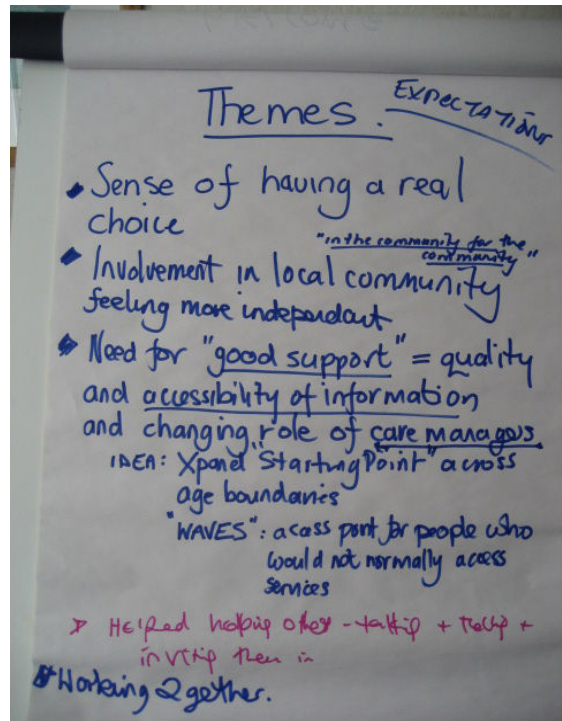 Themes.
EXPECTATIONS
Sense of having a real
choice
"in the community for the
community"
Involvement in local community
feeling more independant
Need for "good support" = quality
and accessibility of information
and changing role of care managers
IDEA: Xpand "Starting Point" across
age boundaries
"WAVES": access point for people who
would not normally access
services
Helped helping other - talking + +
inviting them in
Working 2gether.